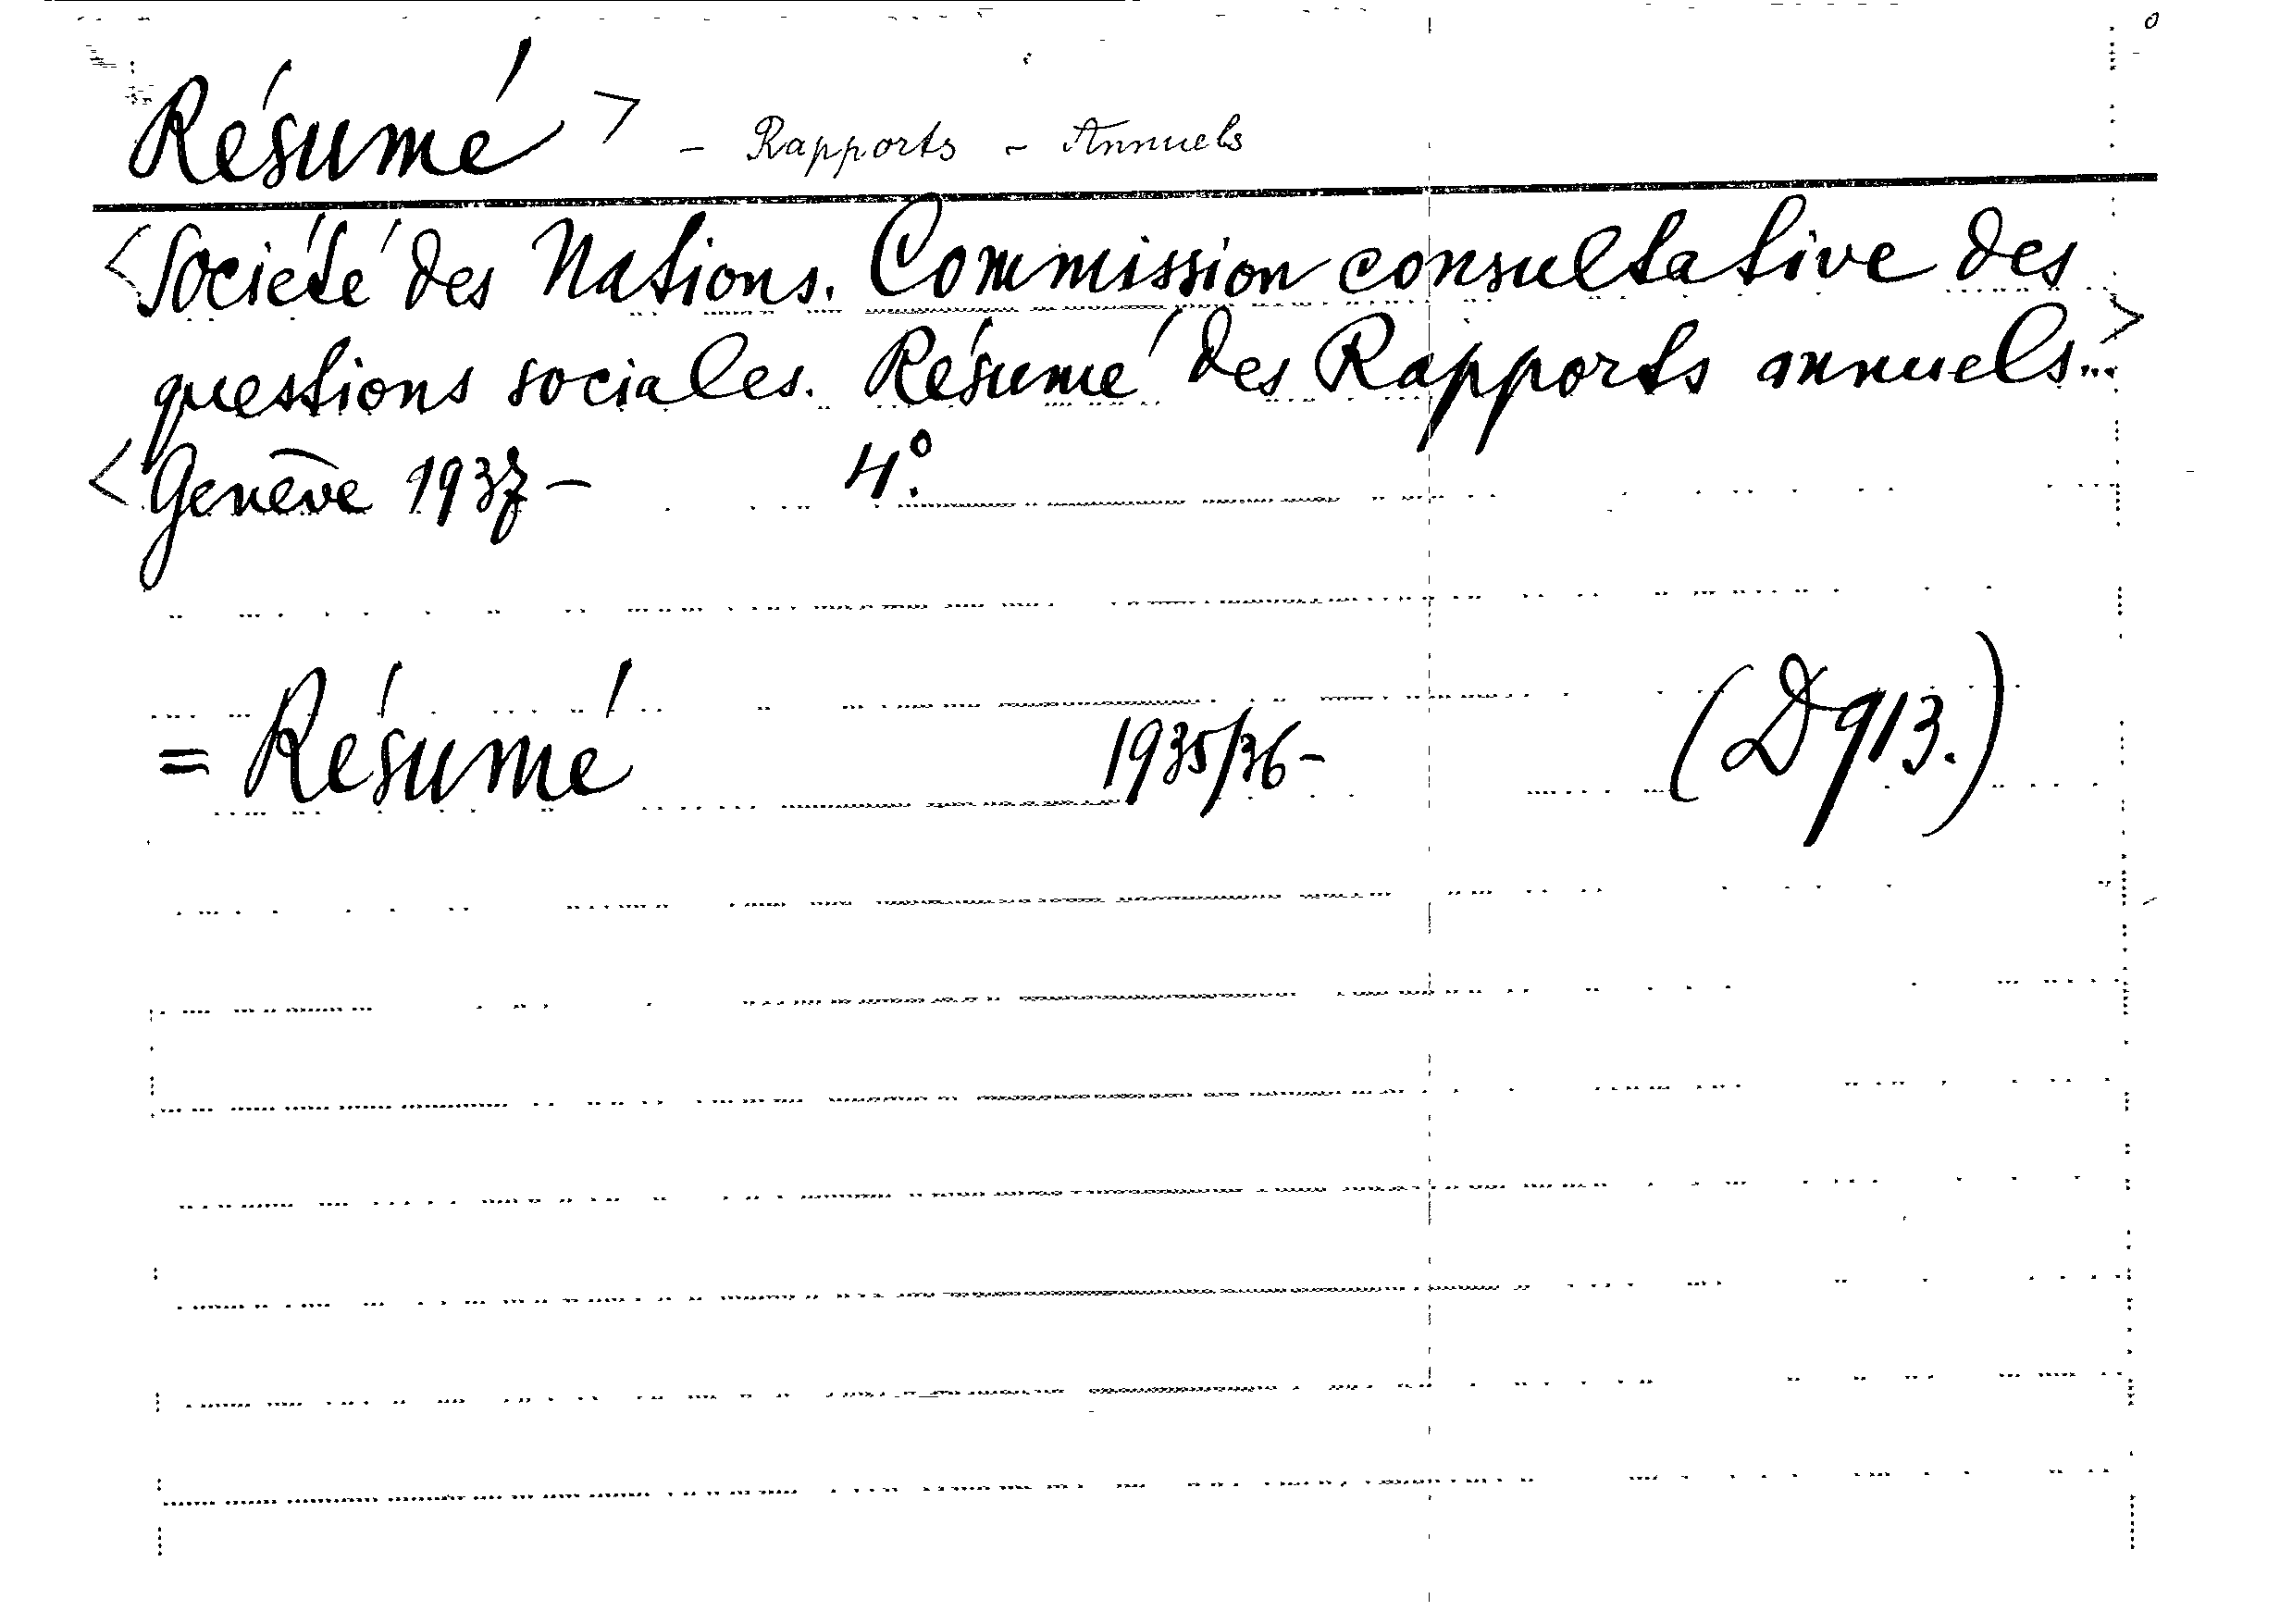 Résumé > - Rapports - Annuels
<Société des Nations. Commission consultative des
questions sociales. Résumé des Rapports annuels...>
<Genève 1937- 4°.
= Résumé 1935/36- (D913.)